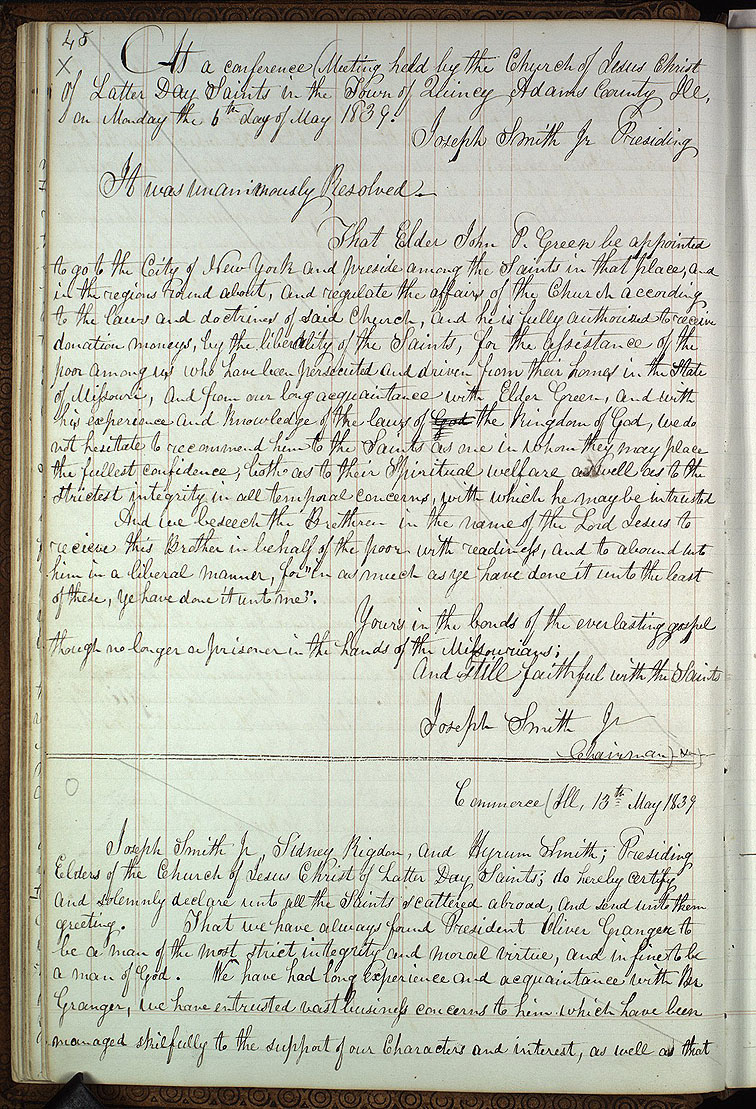 45
X
At a conference Meeting held by the Church of Jesus Christ
of Latter Day Saints in the Town of Quincy Adams County Ill,
on Monday the 6th day of May 1839.
Joseph Smith Jr Presiding
It was unanimously Resolved
That Elder John P. Green be appointed
to go to the City of New York and preside among the Saints in that place, and
in the regions round about, and regulate the affairs of the Church according
to the laws and doctrines of said Church, and he is fully authorized to receive
donation moneys, by the liberality of the Saints, for the assistance of the
poor among us who have been persecuted and driven from their homes in the State
of Missouri, and from our long acquaintance with Elder Green, and with
his experience and knowledge of the laws of God the Kingdom of God, we do
not hesitate to recommend him to the Saints as one in whom they may place
the fullest confidence, both as to their Spiritual welfare as well as to the
strictest integrity in all temporal concerns, with which he may be intrusted
And we beseech the Brethren in the name of the Lord Jesus to
recieve this Brother in behalf of the poor with readiness, and to abound unto
him in a liberal manner, for "in as much as ye have done it unto the least
of these, ye have done it unto me".
Yours in the bonds of the everlasting gospel
though no longer a prisoner in the hands of the Missourians;
And still faithful with the Saints
Joseph Smith Jr
Chairman
Commerce Ill, 13th May 1839
Joseph Smith Jr, Sidney Rigdon, and Hyrum Smith; Presiding
Elders of the Church of Jesus Christ of Latter Day Saints; do hereby certify
and solemnly declare unto all the Saints scattered abroad, and send unto them
greeting. That we have always found President Oliver Granger to
be a man of the most strict integrity and moral virtue, and in fine to be
a man of God. We have had long experience and acquaintance with Br
Granger, we have entrusted vast business concerns to him which have been
managed skilfully to the support of our Characters and interest, as well as that